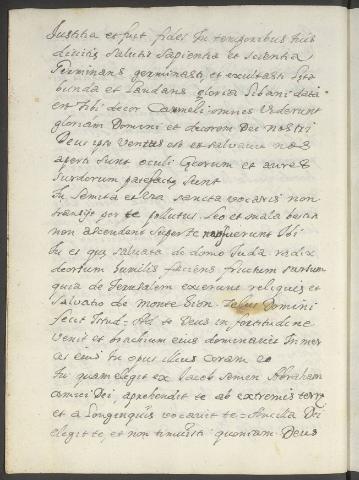 Justitia et fuit fides in temporibus tuis
divitiæ salutis sapientia et scientia
Germinans germinasti, et exultasti læta
bunda et laudans gloria Libani data
est tibi decor Carmeli omnes viderunt
gloriam Domini et decorem Dei nostri
Deus ipse venias est et salvavit nos
aperti sunt oculi cæcorum et aures
surdorum patefactæ sunt
Tu semita et via sancta vocaris non
transijt per te pollutus. Leo et mala bestia
non ascendent super te nec fuerunt ibi
Tu es quæ salvata de domo Juda radix
deorsum humilis faciens fructum sursum
quia de Jerusalem exierunt reliquiæ et
salvatio de monte Sion. Zelus Domini
fecit istud te Deus in fortitudine
venit et brachium eius dominavit Merces
eius tu opus illius coram eo
Tu quam elegit ex Jacob semen Abraham
amici Dei, apprehendit te ab extremis terræ
et a longinquis vocavit te Ancilla Dei
elegit te, et non timuisti quoniam Deus